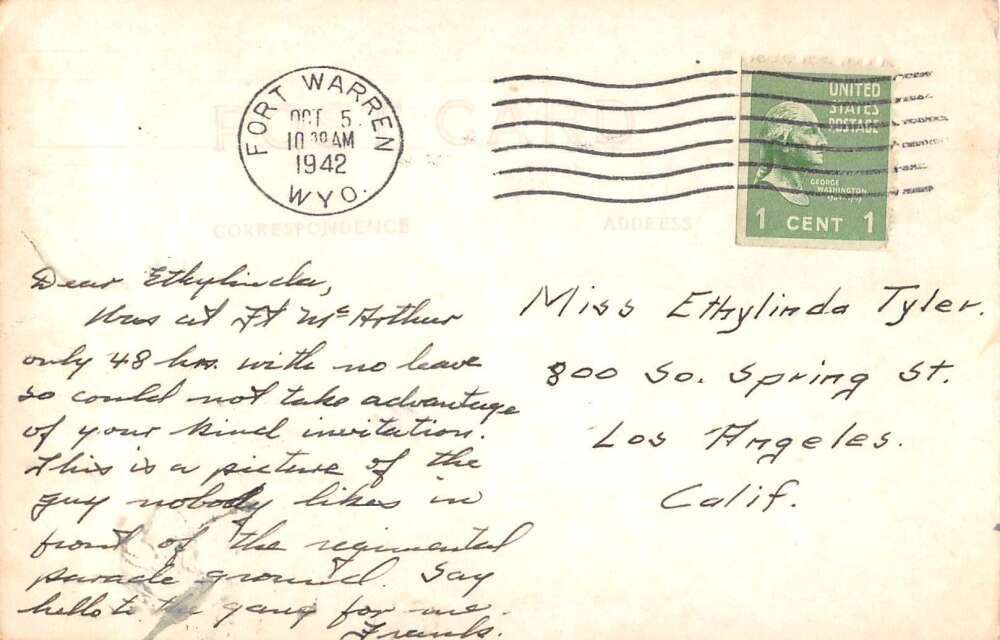 POST CARD
FORT WARREN
OCT 5
10 30 AM
1942
WYO.
UNITED
STATES
POSTAGE
GEORGE
WASHINGTON
1 CENT 1
CORRESPONDENCE
ADDRESS
Dear Ethylinda,
Was at Ft McArthur
only 48 hrs. with no leave
so could not take advantage
of your kind invitation.
This is a picture of the
guy nobody likes in
front of the regimental
parade ground. Say
hello to the gang for me.
Frank.
Miss Ethylinda Tyler.
800 So. Spring St.
Los Angeles.
Calif.